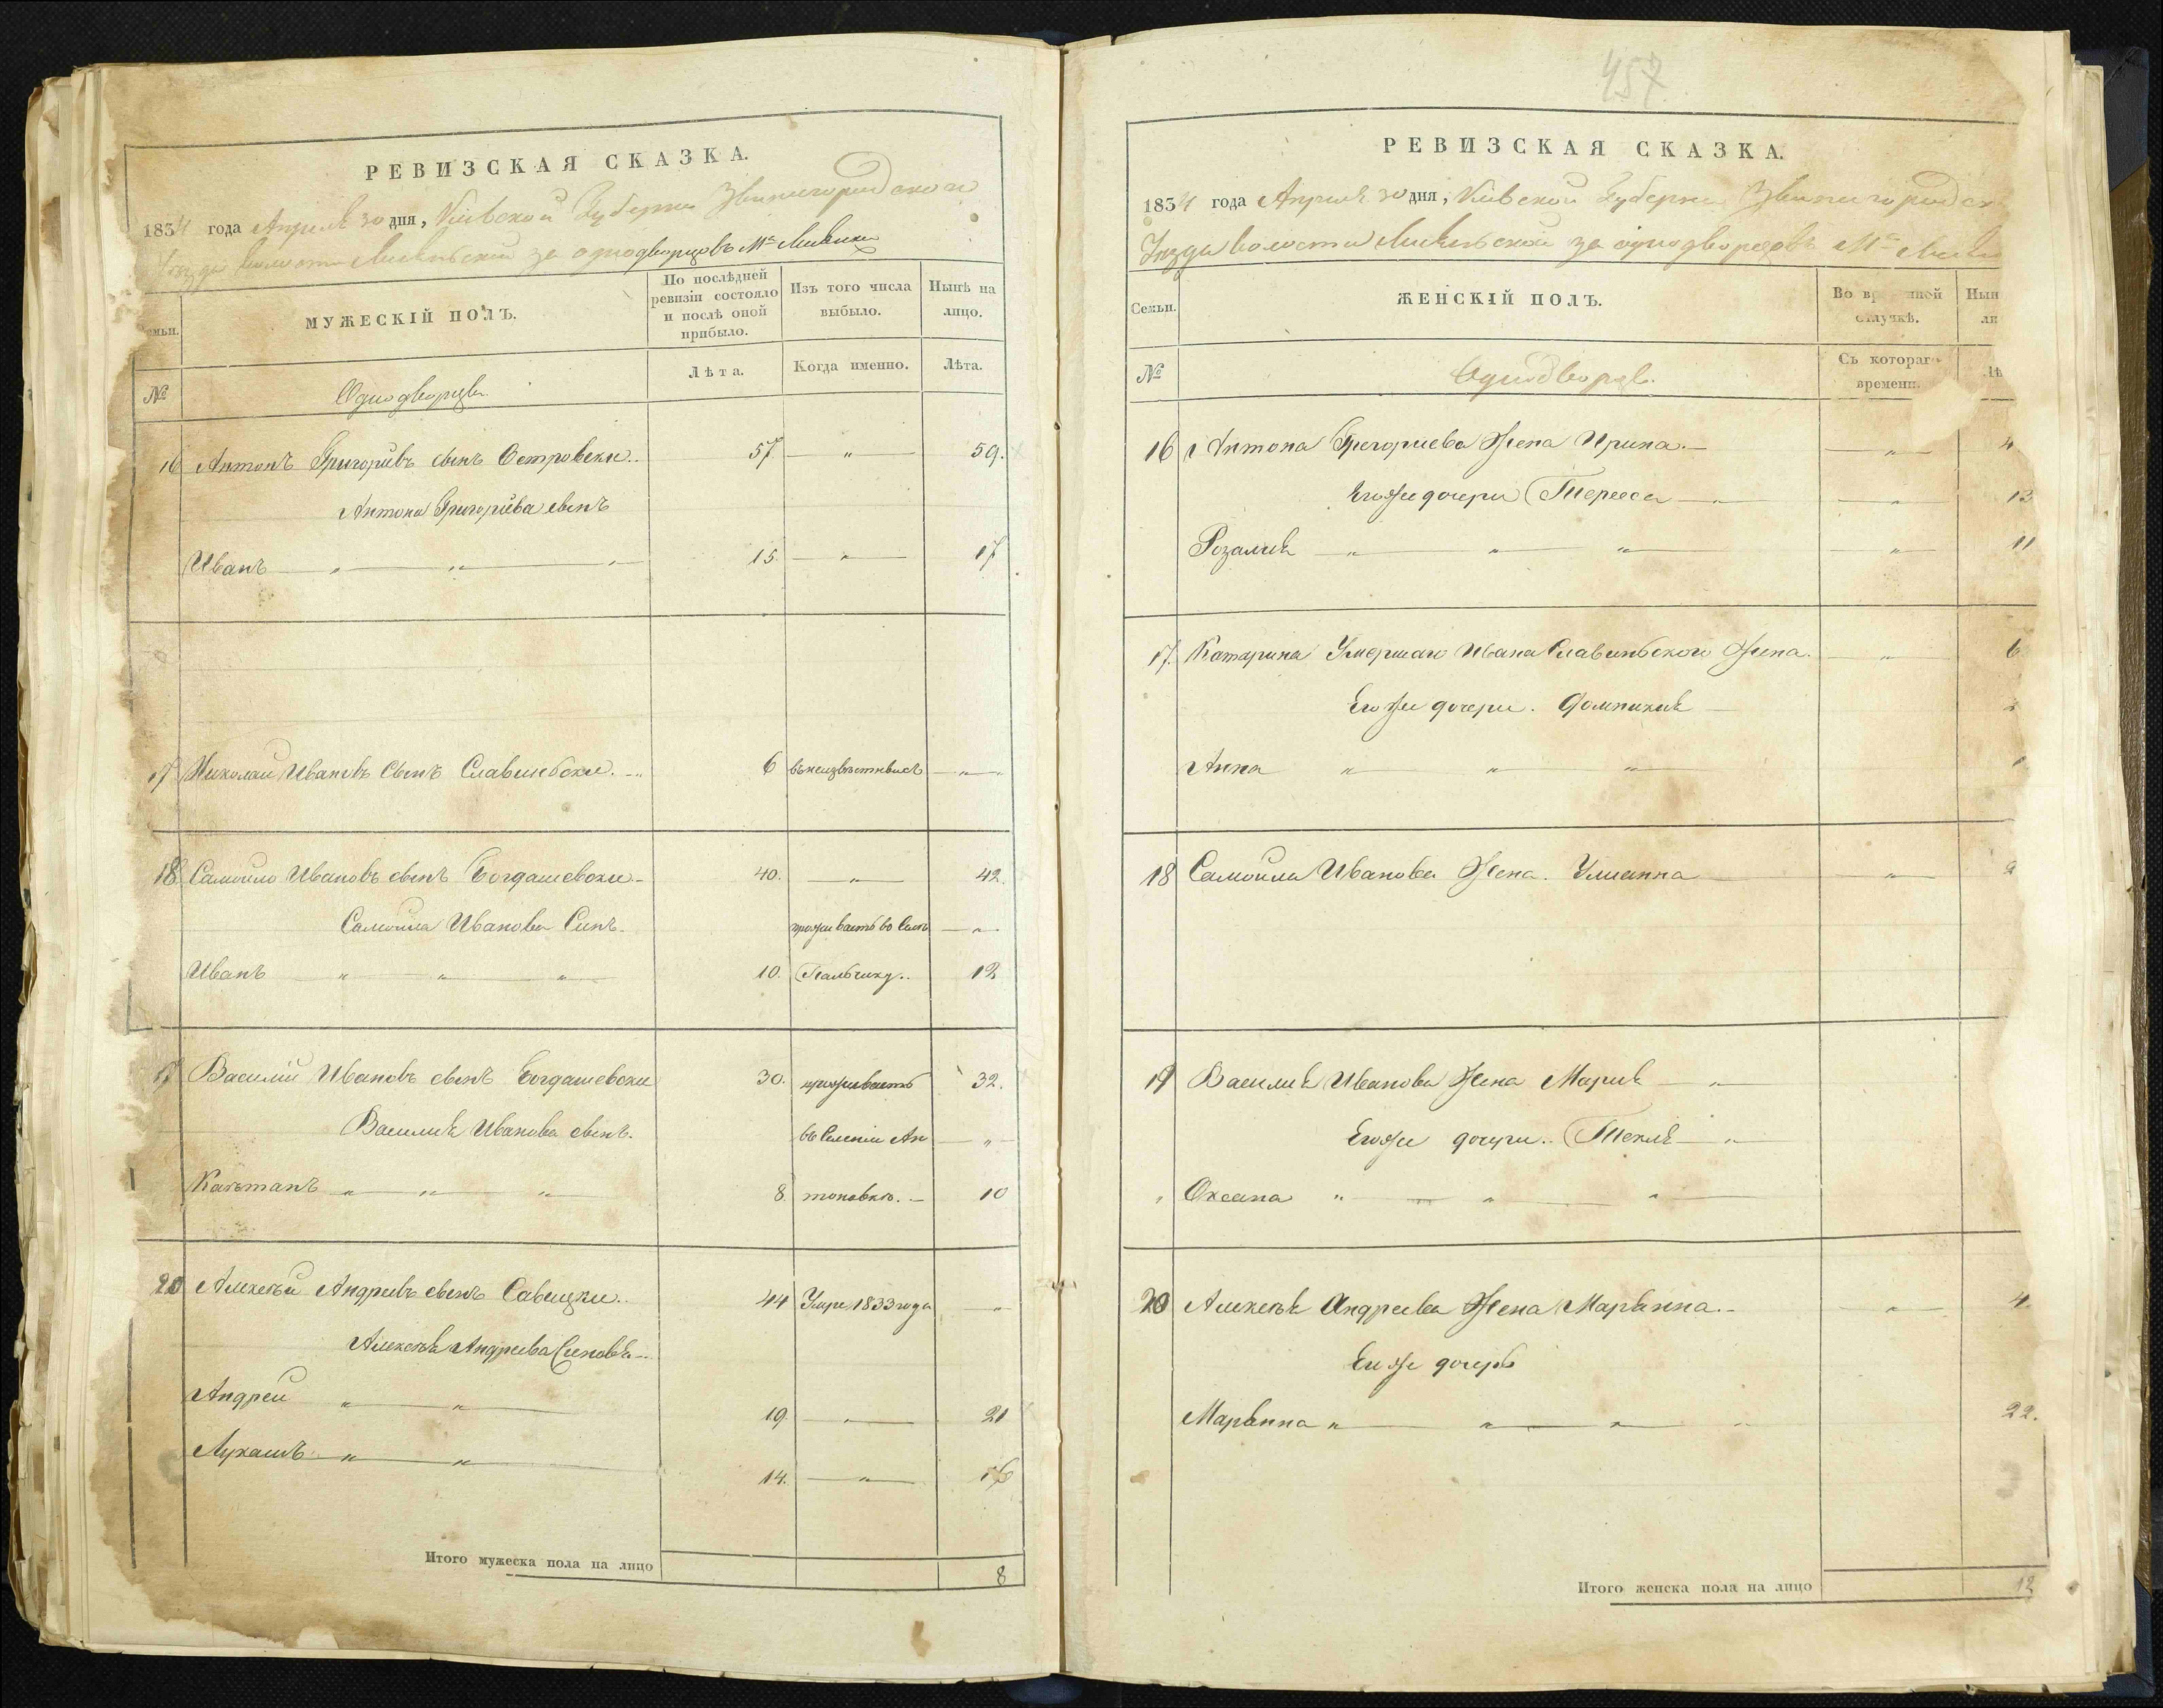 РЕВИЗСКАЯ СКАЗКА.
1834 года Апреля 30 дня, Кіевской Губерни Звинигородского
Уезда волости за однодворцовъ Мс
Семьи.
МУЖЕСКІЙ ПОЛЪ.
По послѣдней ревизіи состояло и послѣ оной прибыло.
Изъ того числа выбыло.
Нынѣ на лицо.
№
Однодворцы.
Лѣта.
Когда именно.
Лѣта.
16 Антонъ Григорієвъ сынъ Островски.. 57. — „ — 59.
Антона Григорієва сынъ
Иванъ — „ — „ — „ — 15. — „ — 17
17 Николай Ивановъ Сынъ 6 — „ —
18 Самойло Ивановъ сынъ Богдашевски — 40. — „ — 42.
Самойла Иванова Сынъ. проживаетъ во Селѣ — „ —
Иванъ „ — „ — „ — 10. Пальчику.. 12
19 Василій Ивановъ сынъ Богдашевски 30. проживаетъ 32.
Василия Иванова сынъ. въ Селении Ан — „ —
Каэтанъ „ — „ — „ 8. тоновки. — 10
20 Алексѣй Андреевъ сынъ Савицки.. 44 Умре 1833 года „
Алексѣя Андреева Сыновья —
Андрей „ — „ — 19. — „ — 21
Лукашъ „ — „ — 14. — „ — 16
Итого мужеска пола на лицо 8
457
РЕВИЗСКАЯ СКАЗКА.
1834 года Апреля 30 дня, Кіевской Губерни Звинигородск
Уезда волости за однодворцовъ Мс
Семьи.
ЖЕНСКІЙ ПОЛЪ.
Во вр нной отлучкѣ.
Нын ли
№
Однодворцы.
Съ котораго времени.
Лѣ
16 Антона Григориева Жена Ирина. — — „ — 4
Егоже дочери Тереса — „ — — „ — 13
Розалия — „ — „ — „ — — „ — 11
17. Катарина Умершаго Ивана Жена. — „ — 6
Егоже дочери.
Анна „ — „ — „
18 Самойла Иванова Жена. Улианна — — „ —
19 Василия Иванова Жена Мария — „ —
Егоже дочери. Текля — „ —
Оксана „ — „ — „ —
20 Алексѣя Андреева Жена Марянна. — — „ — 4.
Егоже дочерь
Марянна „ — „ — „ — 22.
Итого женска пола на лицо 12